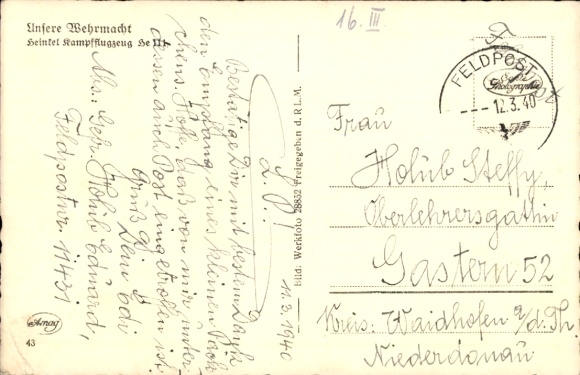 Unsere Wehrmacht
Heinkel Kampfflugzeug He 111
16. III.
FELDPOST
Echte
Photographie
12.3.40
11.3.1940
L. P.!
Bestätige Dir mit bestem Dank
den Empfang eines kleinen Päck
chens. Hoffe, daß von mir unter
dessen auch Post eingetroffen ist.
Gruß Dein Edi
Abs.: Gefr. Holub Eduard,
Feldpostnr. 11431
Bild: Werkfoto 28832 Freigegeben d. R.L.M.
Frau
Holub Steffy,
Oberlehrersgattin
Gastern 52
Kreis: Waidhofen a/d. Th.
Niederdonau
Amag
43